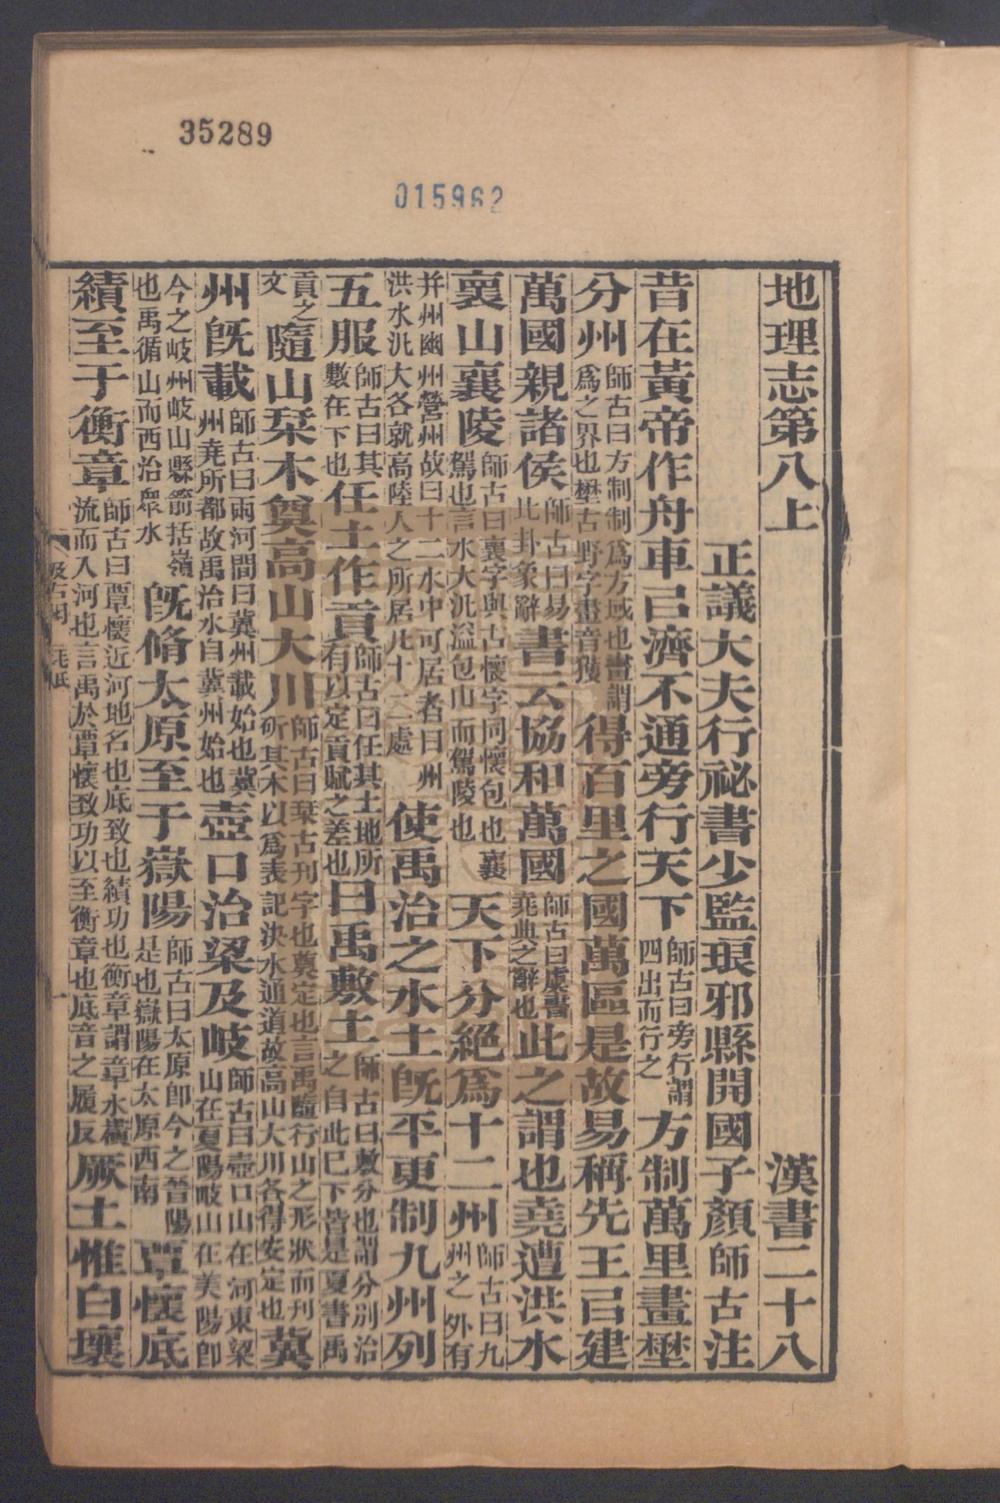 35289
015962
地理志第八上　漢書二十八
正議大夫行祕書少監琅邪縣開國子顏師古注
昔在黃帝作舟車㠯濟不通旁行天下師古曰旁行謂四出而行之方制萬里畫壄
分州師古曰方制制爲方域也畫謂爲之界也壄古野字畫音獲得百里之國萬區是故易稱先王㠯建
萬國親諸侯師古曰易比卦象辭書云協和萬國師古曰虞書堯典之辭也此之謂也堯遭洪水
褱山襄陵師古曰褱字與古懷字同懷包也襄駕也言水大汎溢包山而駕陵也天下分絕爲十二州師古曰九州之外有
并州幽州營州故曰十二水中可居者曰州洪水汎大各就高陸人之所居凡十二處使禹治之水土旣平更制九州列
五服師古曰其數在下也任土作貢師古曰任其土地所有以定貢賦之差也曰禹敷土師古曰敷分也謂分別治之自此已下皆是夏書禹
貢之文隨山栞木奠高山大川師古曰栞古刊字也奠定也言禹隨行山之形狀而刊斫其木以爲表記決水通道故高山大川各得安定也冀
州旣載師古曰兩河間曰冀州載始也冀州堯所都故禹治水自冀州始也壺口治梁及岐師古曰壺口山在河東梁山在夏陽岐山在美陽卽
今之岐州岐山縣箭括嶺也禹循山而西治衆水旣脩太原至于嶽陽師古曰太原卽今之晉陽是也嶽陽在太原西南覃懷底
績至于衡章師古曰覃懷近河地名也底致也績功也衡章謂章水橫流而入河也言禹於覃懷致功以至衡章也底音之履反厥土惟白壤